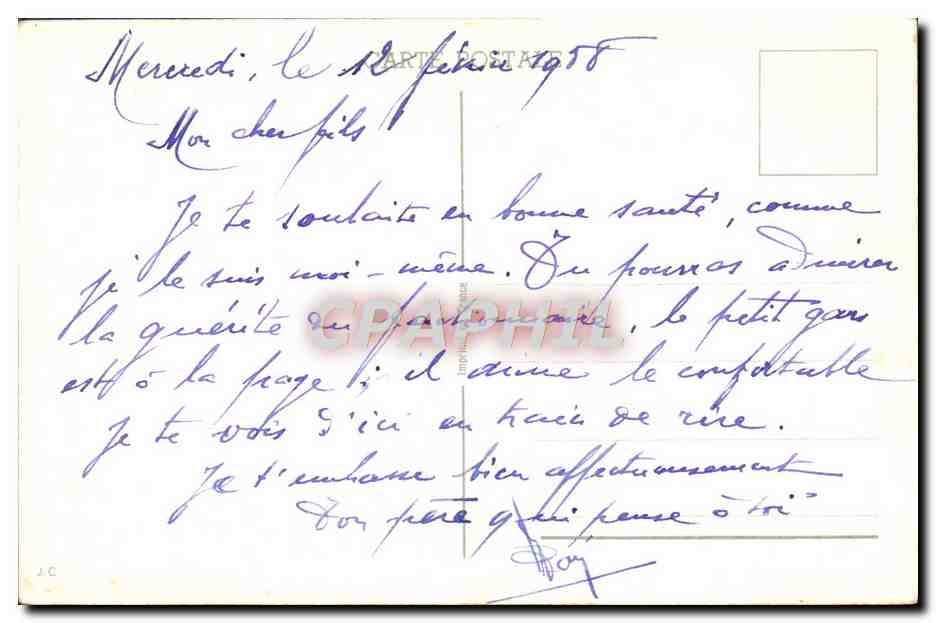 CARTE POSTALE
Mercredi, le 12 février 1958
Mon cher fils
Je te souhaite en bonne santé, comme
je le suis moi-même. Tu pourras admirer
la guérite du factionnaire, le petit gars
est à la page ; il aime le confortable
je te vois d'ici en train de rire.
Je t'embrasse bien affectueusement
Ton père qui pense à toi
Imprimé France
GRAPHIL
J.C